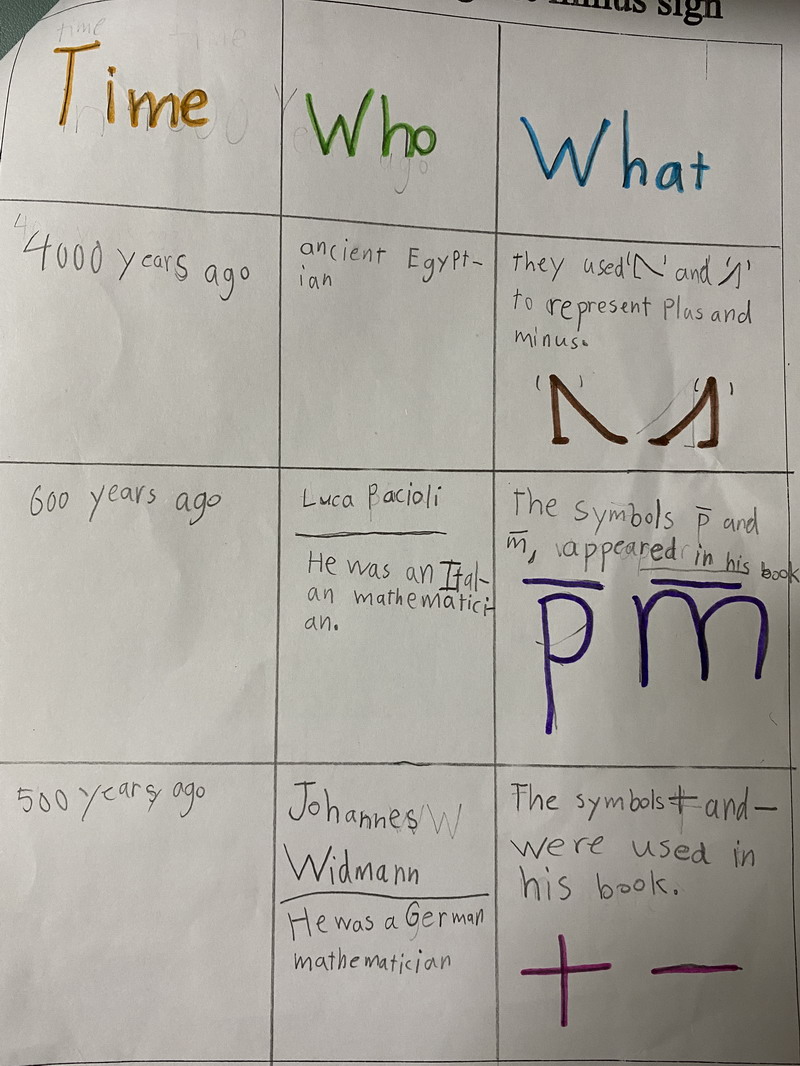 minus sign
Time
Who
What
4000 years ago
ancient Egypt-
ian
they used '𓂻' and '𓂽'
to represent Plus and
minus.
600 years ago
Luca Bacioli
He was an Ital-
an mathematici-
an.
The symbols p̅ and
m̅, appeared in his book
p̅ m̅
500 years ago
Johannes W
Widmann
He was a German
mathematician
The symbols + and −
were used in
his book.
+ −